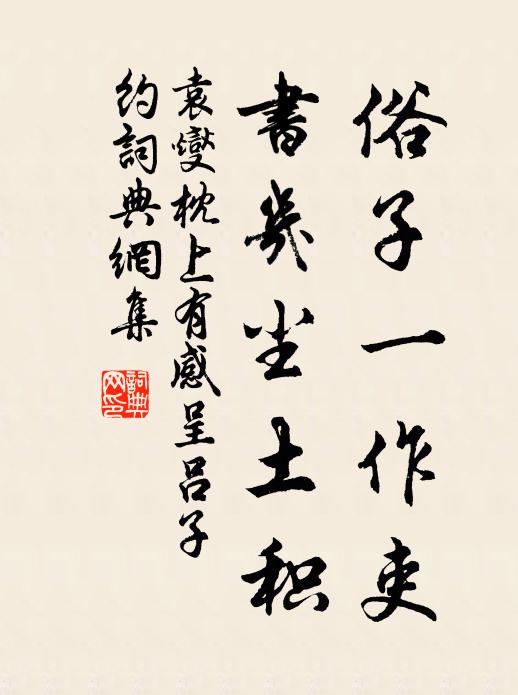 俗子一作吏
書几尘土积
袁燮枕上有感呈吕子
约詞典網集
詞典
网印